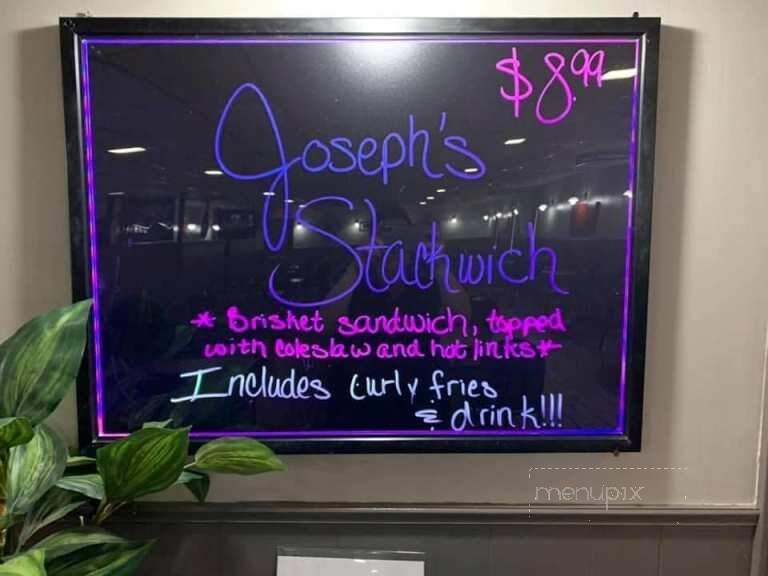 $8.99
Joseph's
Stackwich
* Brisket sandwich, topped
with coleslaw and hot links *
Includes curly fries
& drink!!!
menupix